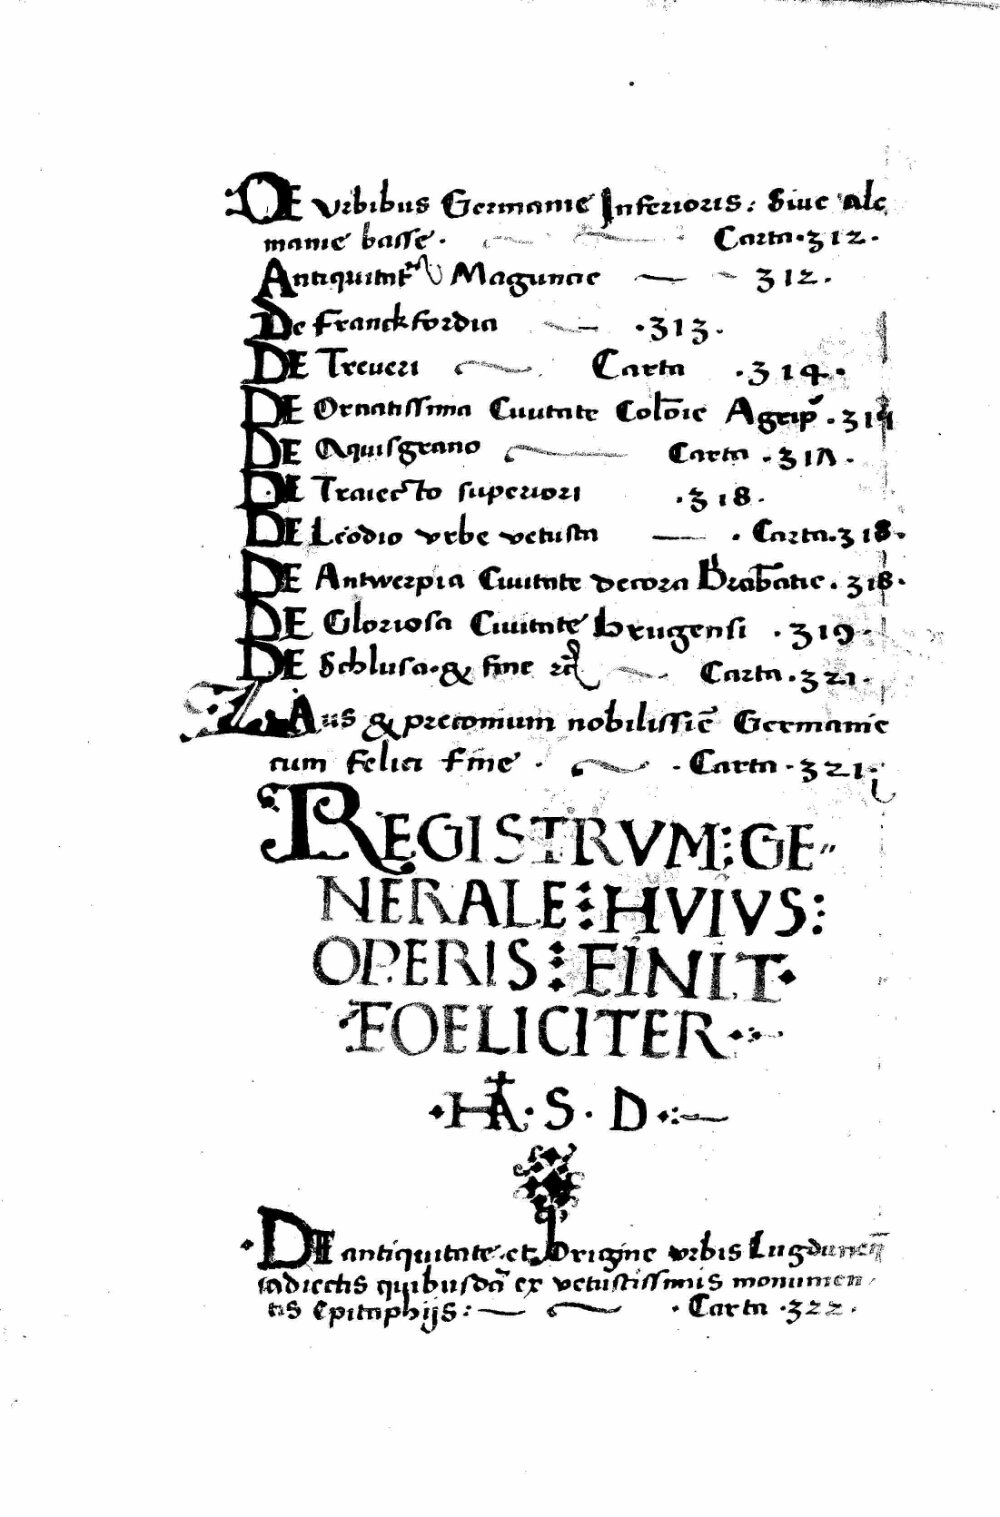 DE Vrbibus Germanie Inferioris: Siue Ale
manie basse· Carta·312·
Antiquitat Magunae 312.
De Franckfordia ·313·
DE Treueri Carta ·314·
DE Ornatissima Ciuitate Colōie Agrip̄.314
DE Aquisgrano Carta ·317·
DE Traiecto superiori ·318·
DE Leodio vrbe vetusta · Carta.318·
DE Antwerpia Ciuitate decora Brabātie.318·
DE Gloriosa Ciuitate brugensi ·319·
DE Schlusa·& fine Carta·321·
LAus & preconium nobilissiē Germanie
cum felici fine· ·Carta·321·
REGISTRVM: GE-
NERALE: HVIVS:
OPERIS: FINIT·
·FOELICITER·
·HA·S·D·
·DE antiquitate·et Origine vrbis Lugduneñ
adiectis quibusdā ex vetustissimis monumen
tis Epitaphijs: ·Carta·322·